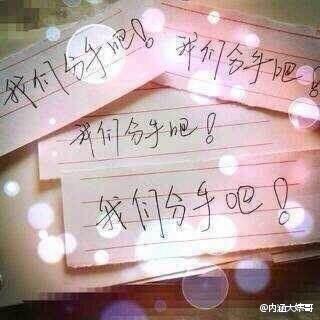 我们分手吧！
我们分手吧！
我们分手吧！
我们分手吧！
@内涵大嫁哥